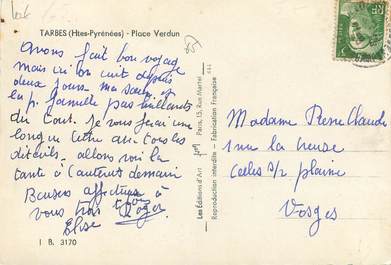 TARBES (Htes-Pyrénées) - Place Verdun
Avons fait bon voyage
mais ici on cuit depuis
deux jours. ma sœur et
sa p. famille pas brillants
du tout. Je vous ferai une
longue lettre avec tous les
détails. allons voir la
tante à Cauterets demain
Baisers affectueux à
vous trois
Elise Roger
I B. 3170
Les Editions d'Art
Paris, 15, Rue Martel
Reproduction interdite - Fabrication Française
Madame Pierre Claude
rue la neuse
Celles s/s plaine
Vosges